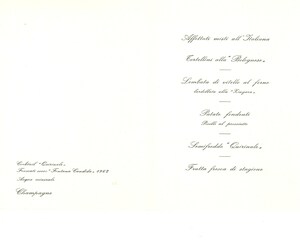 Cocktail "Quirinale"
Frascati secco "Fontana Candida" 1952
Acqua minerale
Champagne
Affettati misti all'Italiana
Tortellini alla "Bolognese"
Lombata di vitello al forno
Patate fondenti
Piselli al prosciutto
Semifreddo "Quirinale"
Frutta fresca di stagione